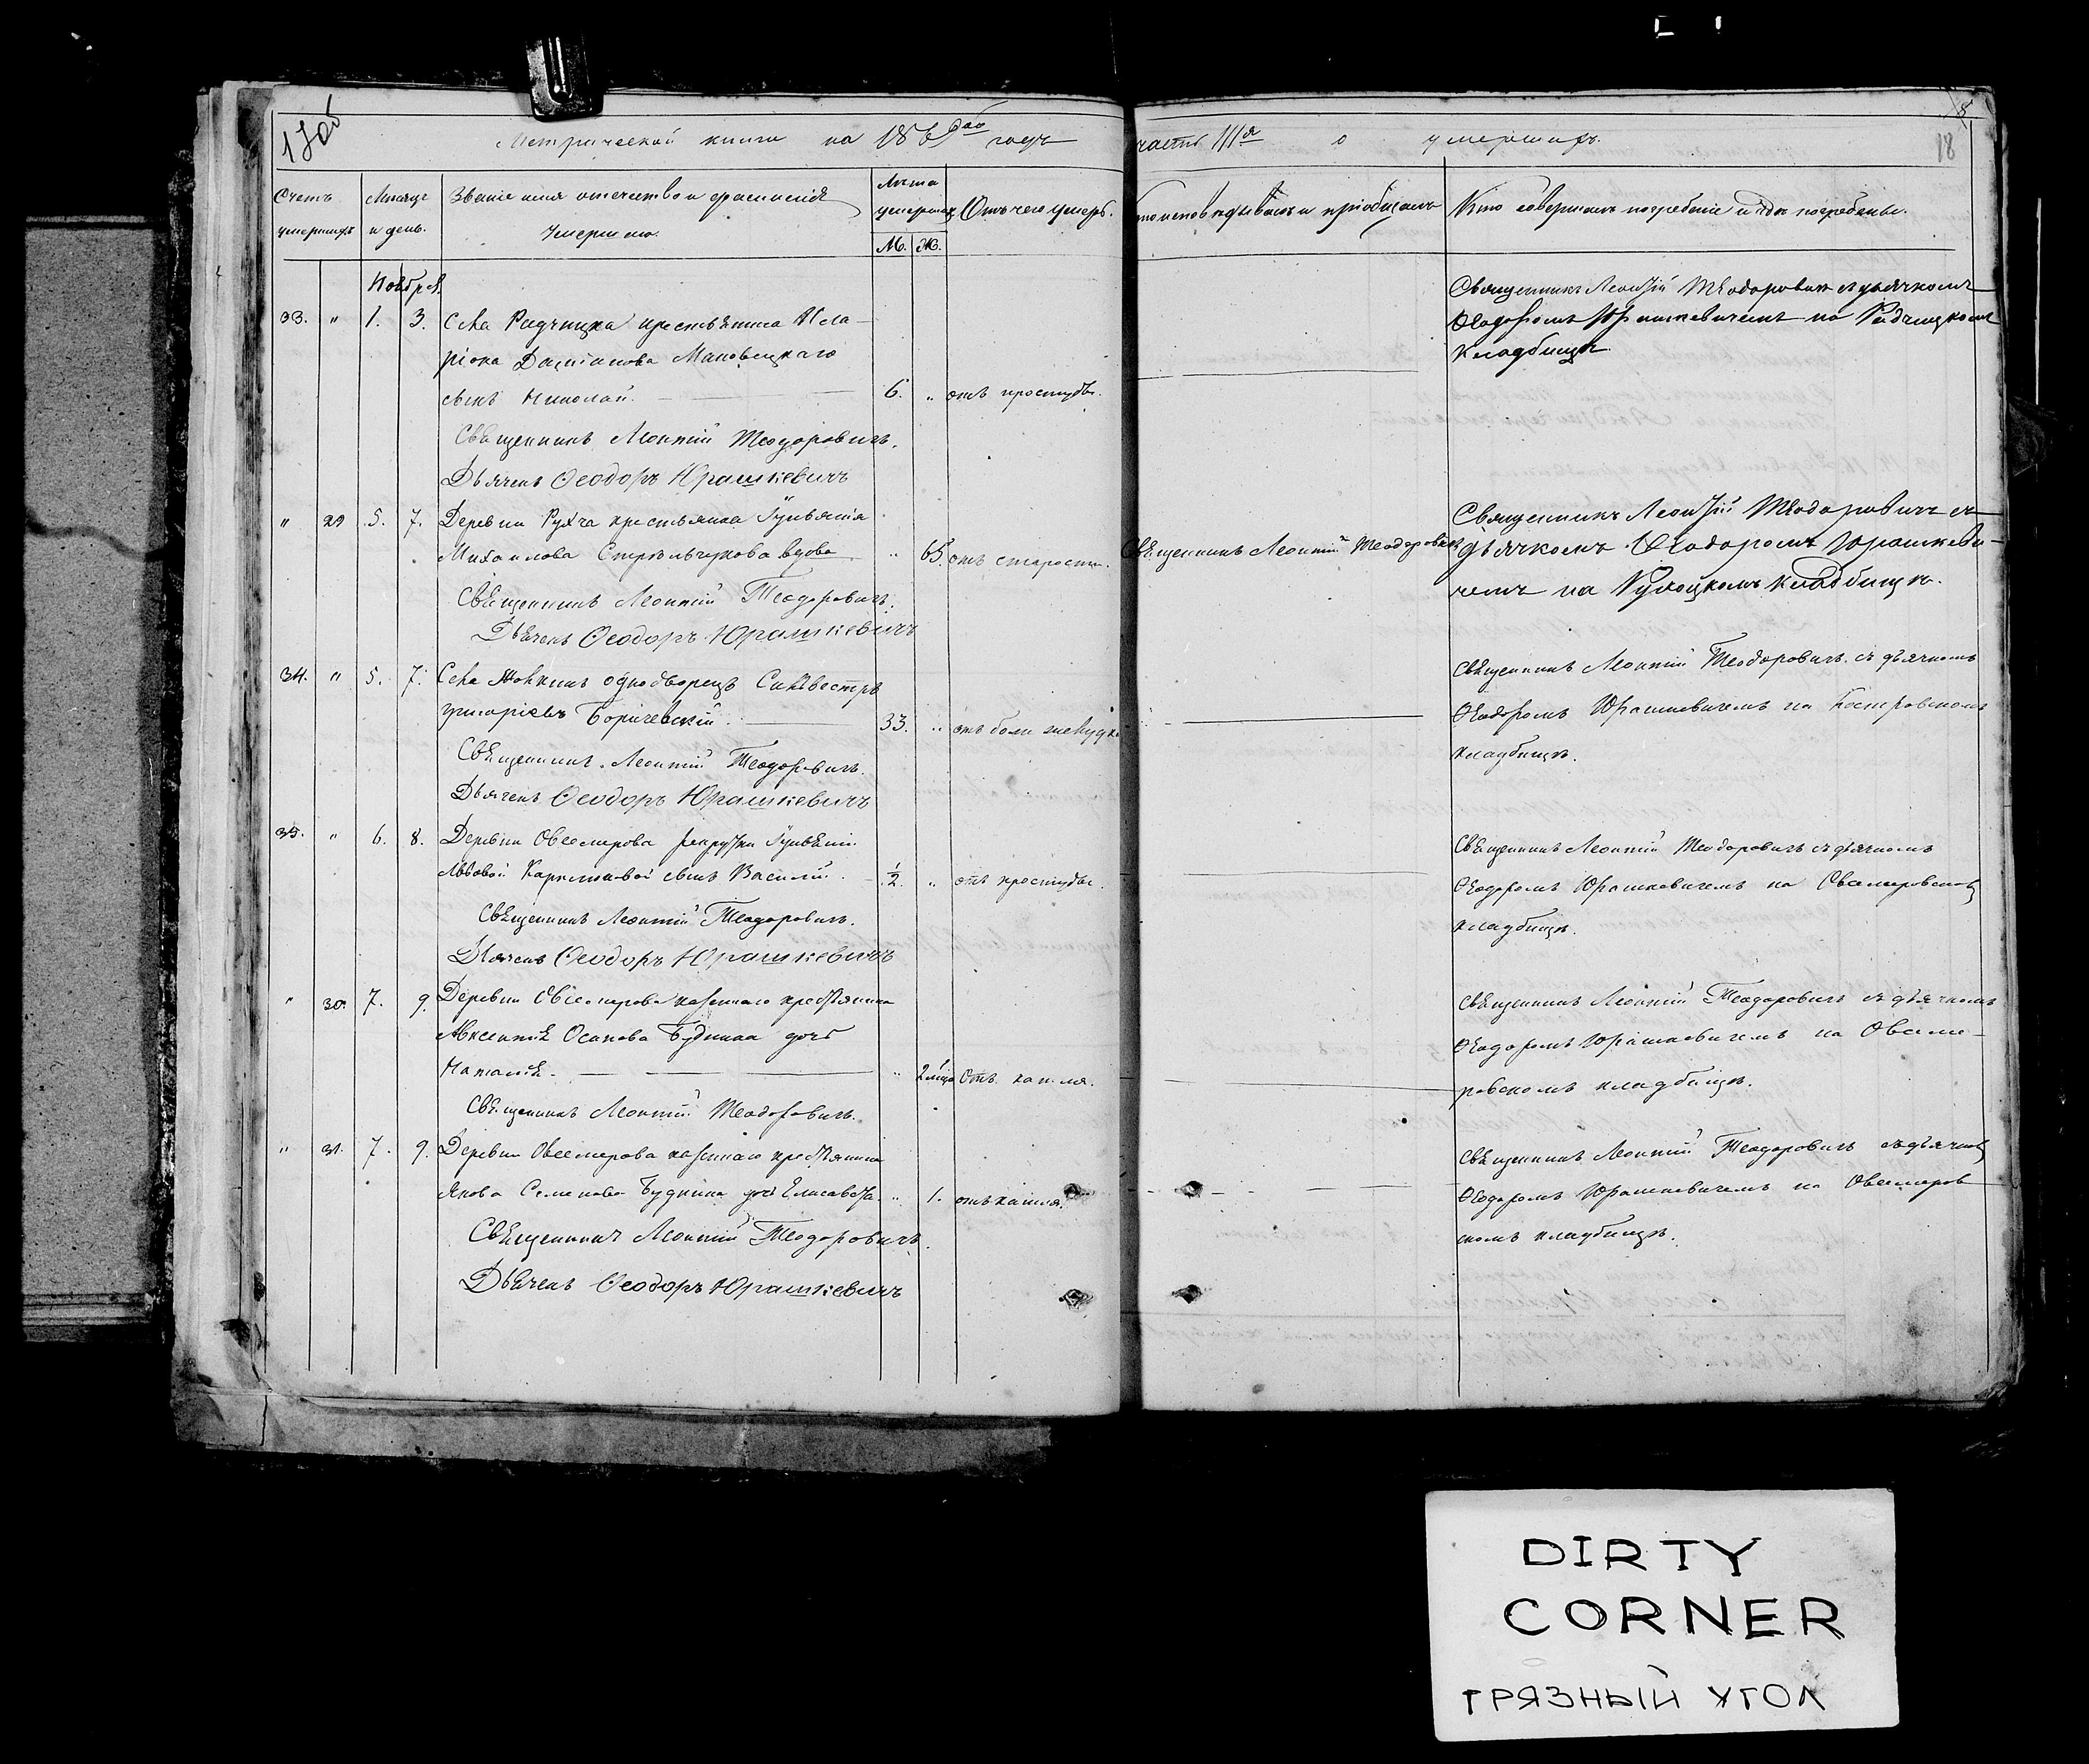 17об
Метрической книги на 1869го годъ часть IIIя о умершихъ.
18
Счетъ умершихъ
Мѣсяцъ и день.
Званіе имя отечество и фамилія
Умершаго.
Лѣта умершаго
М. Ж.
Отъ чего умеръ.
исповѣдывалъ и пріобщалъ
Кто совершалъ погребеніе и гдѣ погребены.
Ноября.
33. " 1. 3. Села Радчицка крестьянина Ила-
ріона Даміанова Маковецкаго
сынъ Николай. 6. " отъ простуды.
Священникъ Леонтій Теодоровичъ.
Дьячекъ Ѳеодоръ Юрашкевичъ
Священникъ Леонтій Теодоровичъ съ дьячкомъ
Ѳеодоромъ Юрашкевичемъ на Радчицкомъ
кладбищѣ.
" 29 5. 7. Деревни Рухча крестьянка
Михаилова Стрѣльчукова вдова " 65. отъ старости.
Священникъ Леонтій Теодоровичъ.
Дьячекъ Ѳеодоръ Юрашкевичъ
Священникъ Леонтій Теодоровичъ
Священникъ Леонтій Теодоровичъ съ
дьячкомъ Ѳеодоромъ Юрашкеви-
чемъ на Рухоцкомъ кладбищѣ.
34. " 5. 7. Села однодворецъ Сильвестръ
Григоріевъ Боричевскій. 33. " отъ боли желудка
Священникъ Леонтій Теодоровичъ.
Дьячекъ Ѳеодоръ Юрашкевичъ
Священникъ Леонтій Теодоровичъ съ дьячкомъ
Ѳеодоромъ Юрашкевичемъ на
кладбищѣ.
35. " 6. 8. Деревни Овсемирова рекрутки
Львовой сынъ Василій. 1/2. " отъ простуды.
Священникъ Леонтій Теодоровичъ.
Дьячекъ Ѳеодоръ Юрашкевичъ
Священникъ Леонтій Теодоровичъ съ дьячкомъ
Ѳеодоромъ Юрашкевичемъ на Овсемировском
кладбищѣ.
" 30. 7. 9. Деревни Овсемирова казеннаго крестьянина
Авксентія Осипова Будника дочь
Наталія. " 2 мѣся Отъ кашля.
Священникъ Леонтій Теодоровичъ.
Священникъ Леонтій Теодоровичъ съ дьячкомъ
Ѳеодоромъ Юрашкевичемъ на Овсеми-
ровскомъ кладбищѣ.
" 31. 7. 9. Деревни Овсемирова казеннаго крестьянина
Якова Семенова Будника дочь Елисавета " 1. отъ кашля.
Священникъ Леонтій Теодоровичъ.
Дьячекъ Ѳеодоръ Юрашкевичъ
Священникъ Леонтій Теодоровичъ съ дьячком
Ѳеодоромъ Юрашкевичемъ на Овсемиров
скомъ кладбищѣ.
DIRTY
CORNER
ГРЯЗНЫЙ УГОЛ